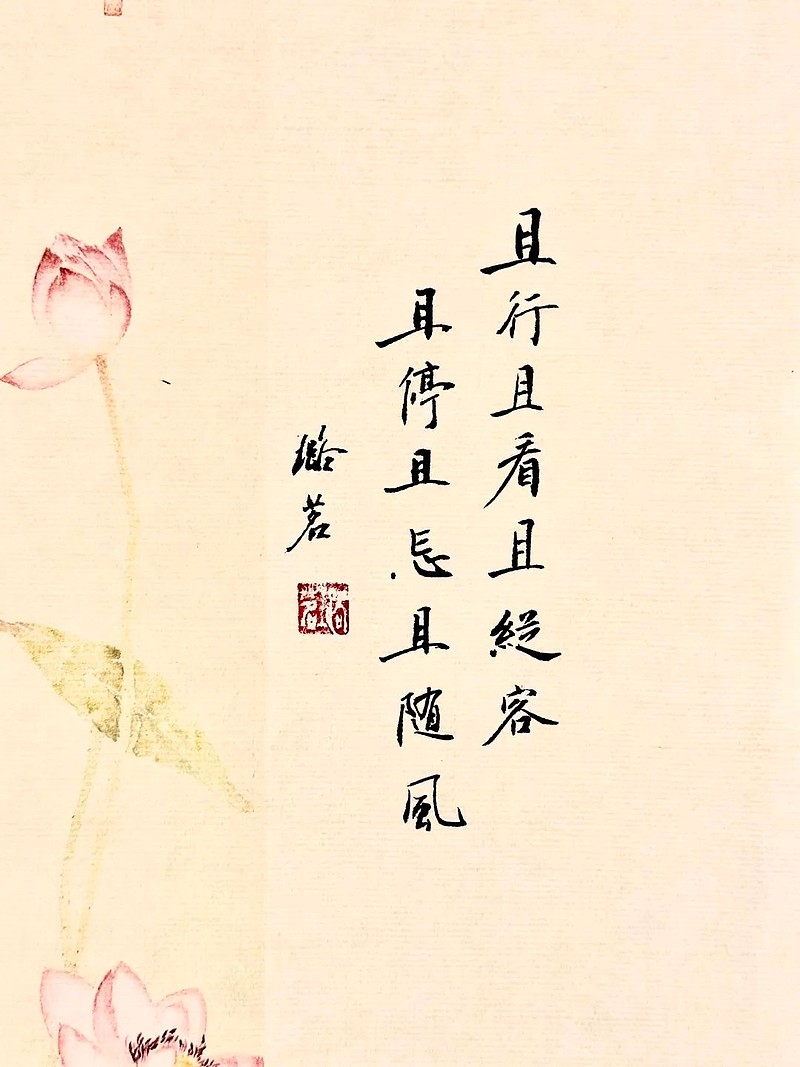 且行且看且縱容
且停且忘且随風
璐茗